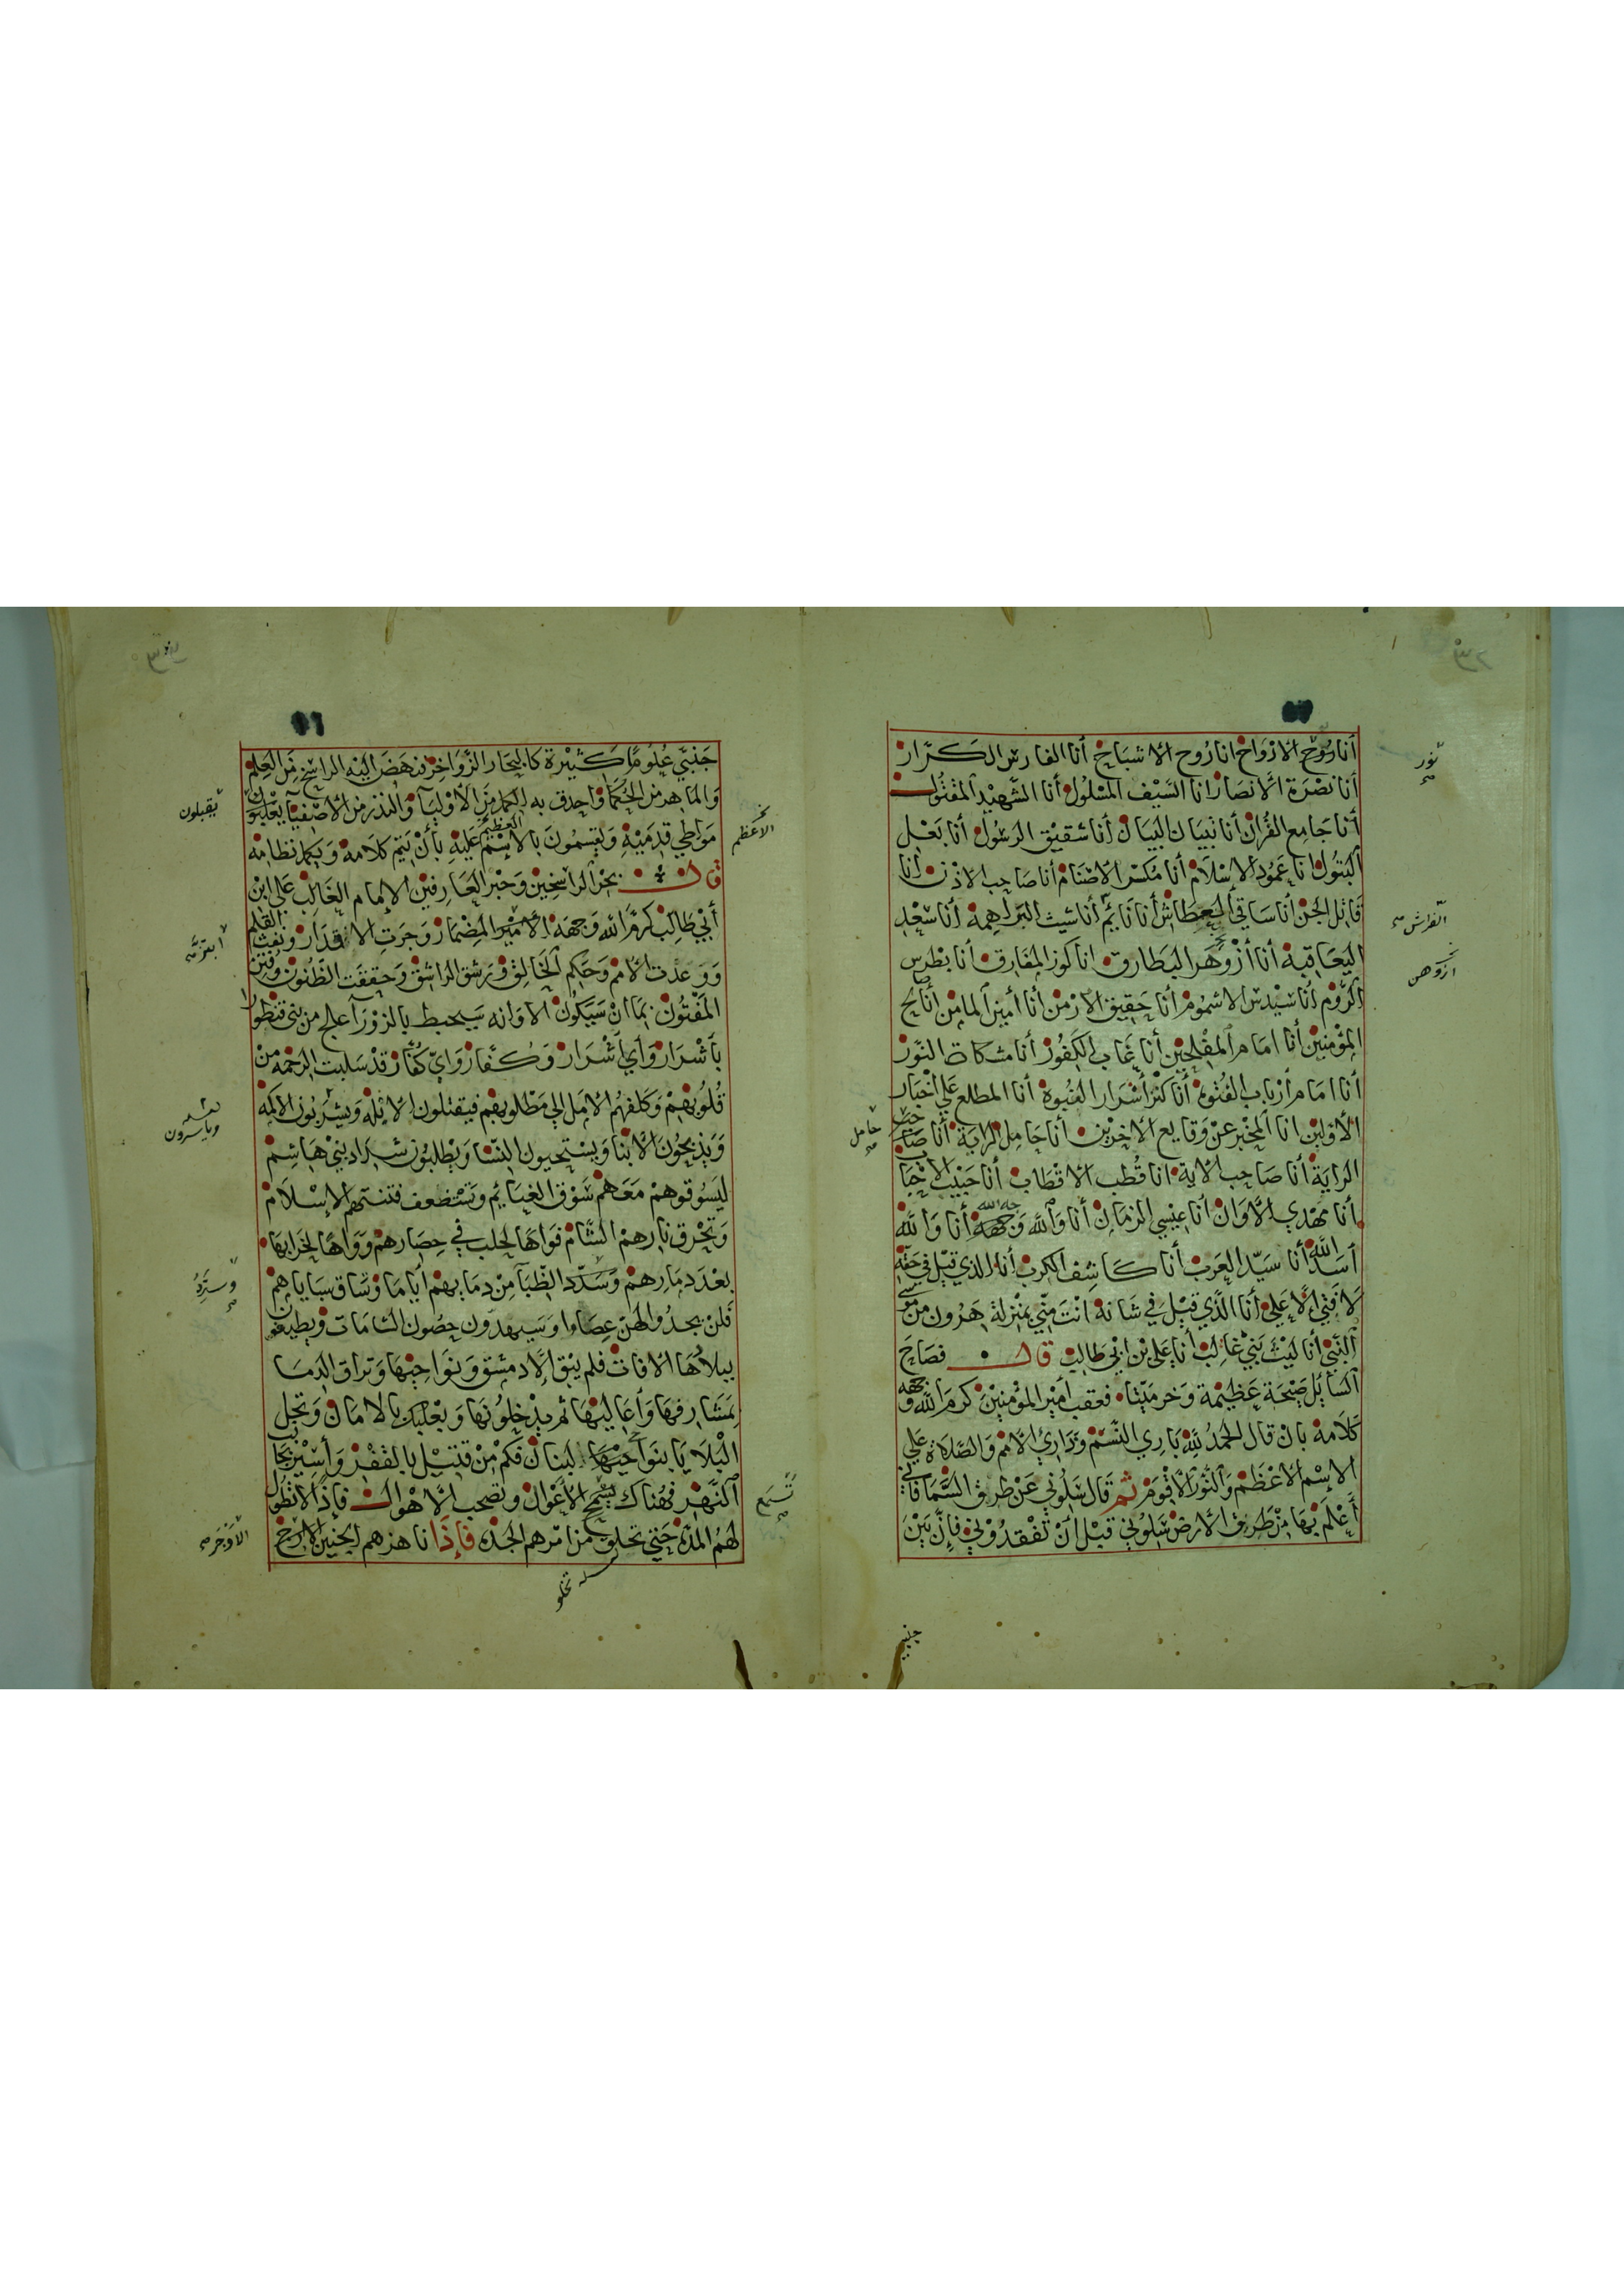 أنا رُوح الارْوَاح انا رُوح الاشبَاح أنا الفَارسُ الكَرّار
أنا نصْرَة الانصَار انا السَّيْف المسْلُول أنا الشّهيْد المقتُول
أنا جَامِع القُرآن أنا تبيَان البيَان أنا شقيْق الرسُول أنا بَعْل
البَتُول انا عَمُود الاِسْلَام أنا مكسّر الاصْنَام أنا صَاحِب الاذن أنا
قَاتل الجن أنا سَاقي العطَاش أنا نَايمُ أنا شيث البَراهِمة أنا سَعْد
اليَعَاقبة أنا أزْوَهَر البَطَارق انا كوز المفَارق أنا بطرس
الرُّوم أنا سَيْدس الاشمُوم أنا حَقِيق الارْمن أنا أمين المامن أنا صَالح
المؤمنِيْن أنا امَام المفْلِحِيْن أنا غَاب الكَفُور أنا مشكات النّور
أنا امَام أرْبَاب الفُتُوة أنا كنْز أسْرَار النُّبُوة أنا المطلع عَلي اخْبَار
الأوّليْن انا المُخْبر عنْ وَقَايع الاخِريْن أنا حَامِل الرايَة أنا صَاحب
الرايَة أنا صَاحِب الاية انا قُطب الاقْطَاب أنا حَبيْب الاحْبَاب
أنا مَهْدي الأوَان أنا عِيْسي الزمَان أنا وَالله وَجهُ الله أنا وَالله
أسَد الله أنا سَيّد العَرَب أنا كَاشِف الكرب أنا الذي قِيْل في حَقّه
لا فتي الّا عَلي أنا الّذي قِيْل في شَانه أنْتَ منّي بمنْزلة هَرُون من مُوسي
النّبي أنا ليْث بَني غَالب أنا عَلي بْن ابْي طَالِب قال فصَاحَ
السَّايُل صَيْحَة عَظِيْمة وَخر ميّتا فعقب أمِيْر المؤمنِيْن كرمَ الله وَجهه
كَلَامهُ بانْ قال الحمدُ لله بَاري النّسَم وَذَاري الأمم وَالصّلَاة عَلي
الاِسْم الأعْظَم وَالنُّور الأقْوم ثم قال سَلُوني عَنْ طريق السَّمَا فاني
أَعْلَم بهَا منْ طَريق الأرض سَلُوني قبْل أنْ تفْقدُوْني فإنّ بَيْنَ
جنبي
نوُر
الفراش
ازوهن
حَامل
جَنْبَيّ عُلُومًا كَثيْرة كالبحَار الزّوَاخِر فنهَضَ اليْه الراسِخ مَن العِلم
وَالمَاهِر من الحُكمَا وَاحدق به الكمل منَ الأوْليَا وَالنّدر من الأصْفيَا يقبّلون
مَوَاطي قدمَيْه وَيقسِمُونَ بالاسْم العَظِيْم عَليْه بأنْ يُتمّ كلَامه وَيكمل نظَامه
قال بحْر الراسِخيْن وَحَبْر العَارِفيْن الاِمام الغَالِب عَلي ابْن
أبي طَالِب كرمَ الله وَجهَه الأمْيْر المِضْمَار وَجَرَتِ الاقدَار وَنَفث القلم
وَوَعدْت الأمم وَحَكم الخَالق وَرَشق الراشق وَحَققَت الظّنُون وَفتن
المفْتُون بمَا انْ سَيَكُون الاوَانه سَيحيط بالزوْرَآ علج من بَني قنطوُرا
بأَشْرَار وَأي أشْرَار وَكُفّار وَايّ كُفّار قدْ سَلبت الرحْمة منْ
قُلوُبهمْ وَكَلفهُم الامَل الي مَطْلوبهم فيَقتلون الايله وَيشرَبُون الاكمه
وَيذبَحُون الابنَا وَيسْتحيون النسَا وَيطْلبُون شداد بَني هَاشِم
ليَسُوقوهمْ مَعَهم سَوْق الغنَايُم وَتسْتضعف فتنتهم الاِسْلَام
وَتحْرق نارهمْ الشَّام فوَاهَا لحلب في حِصَارهمْ وَوَاهًا لخرَابهَا
بعْدَ دمَارهمْ وَسَدّد الظّبَا مِنْ دمَابهمْ أيّامَا وَتسَاق سَبَايَاهم
فلنْ يجدُوا لهنّ عصَاوا وَسَيهدّون حصُون الشامَات وَيطيفون
ببلَادهَا الافات فلم يبْق الّا دمشق وَنوَاحِيْهَا وَتراق الدمَا
بمَشَارفهَا وَأعَاليْهَا ثم يدْخلوُنهَا وَبعْلبَك بالامَان وَتحُل
البْلَايَا بنوَاحيْهَا لبنان فكمْ منْ قتيْل بالقفْر وَأسِيْر بجَانب
النّهْر فهُنَاك تسْمع الأعْوَال وَتصْحب الاهْوال فإذًا لا تطُول
لهُم المدّة حَتي تخلق منْ امْرهم الجدّة فإذَا انا هزهم الحَنِيْن الاوْجر
يقبلون
الاعظم
وياسرون
تسمع
الاوجر